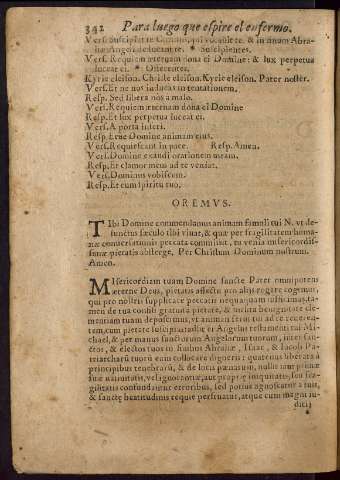 342 Para luego que espire el enfermo.
Vers. Suscipiat te Christus, qui vocavit te. & in sinum Abra-
hæ Angeli deducant te. * Suscipientes.
Vers. Requiem æternam dona ei Domine: & lux perpetua
luceat ei. * Offerentes.
Kyrie eleison. Christe eleison. Kyrie eleison. Pater noster.
Vers. Et ne nos inducas in tentationem.
Resp. Sed libera nos a malo.
Vers. Requiem æternam dona ei Domine
Resp. Et lux perpetua luceat ei.
Vers. A porta inferi.
Resp. Erue Domine animam eius.
Vers. Requiescant in pace. Resp. Amen.
Vers. Domine exaudi orationem meam.
Resp. Et clamor meus ad te veniat.
Vers. Dominus vobiscum.
Resp. Et cum spiritu tuo.
OREMVS.
TIbi Domine commendamus animam famuli tui N. vt de-
functus sæculo tibi viuat, & quæ per fragilitatem huma-
næ conuersationis peccata commisit, tu venia misericordis-
simæ pietatis absterge. Per Christum Dominum nostrum.
Amen.
MIsericordiam tuam Domine sancte Pater omnipotens
æterne Deus, pietatis affectu pro alijs rogare cogimur,
qui pro nostris supplicare peccatis nequaquam sufficimus, ta-
men de tua confisi gratuita pietate, & inolita benignitate cle-
mentiam tuam deposcimus, vt animam serui tui ad te reuerten-
tem, cum pietate suscipias: adsit ei Angelus testamenti tui Mi-
chael, & per manus sanctorum Angelorum tuorum, inter san-
ctos, & electos tuos in sinibus Abrahæ, Isaac, & Iacob Pa-
triarcharũ tuorũ eam collocare digneris: quatenus liberata à
principibus tenebrarũ, & de locis pœnarum, nullis iam primæ
suæ natiuitatis, vel ignorantiæ, aut propriæ iniquitatis, seu fra-
gilitatis confundatur erroribus, sed potius agnoscatur a tuis,
& sanctę beatitudinis requie perfruatur, atque cum magni iu-
dicij